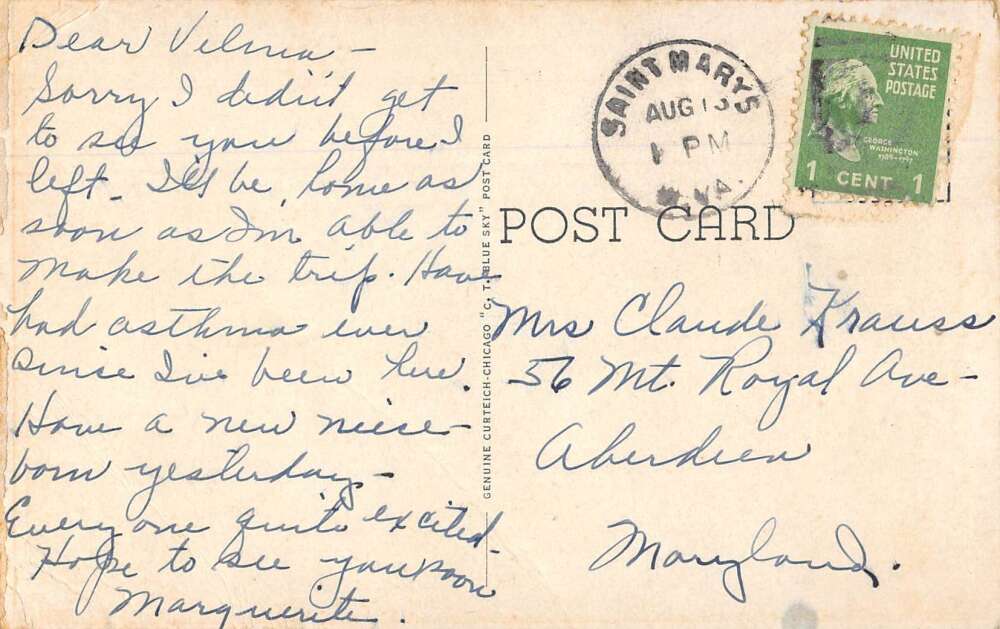 Dear Velma -
Sorry I didn't get
to see you before I
left. I'll be home as
soon as I'm able to
make the trip. Have
had asthma ever
since I've been here.
Have a new niece -
born yesterday -
Everyone quite excited -
Hope to see you soon
Marguerite.
GENUINE CURTEICH-CHICAGO "C. T. BLUE SKY" POST CARD
SAINT MARYS
AUG 13
1 PM
W.VA.
UNITED
STATES
POSTAGE
GEORGE
WASHINGTON
1789-1797
1 CENT 1
POST CARD
Mrs Claude Krauss
56 Mt. Royal Ave -
Aberdeen
Maryland.